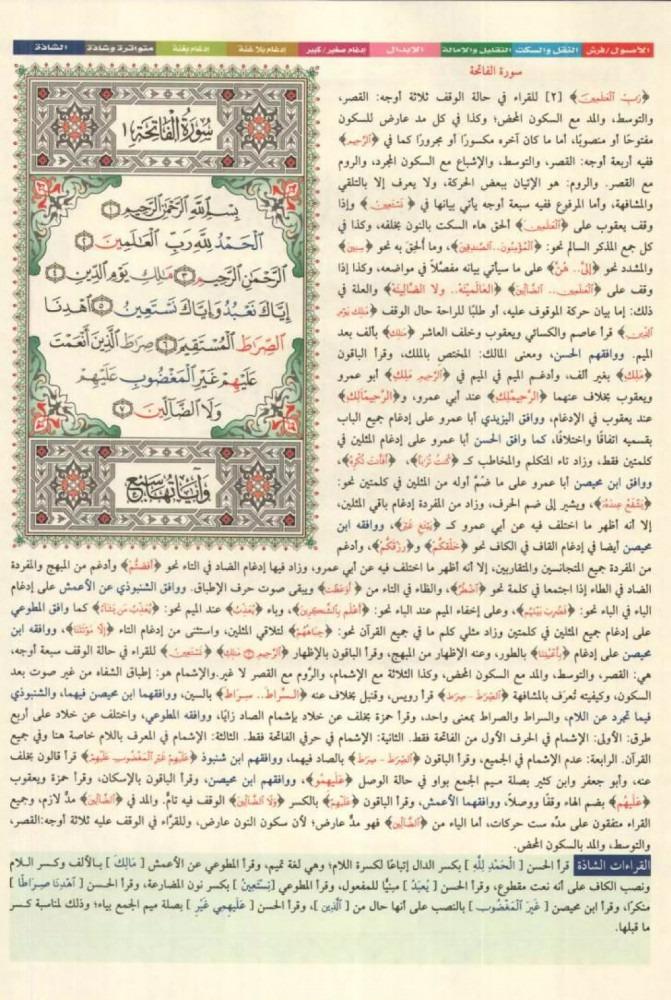 الأصول/فرش النقل والسكت التقليل والإمالة الإبدال إدغام صغير/كبير إدغام بلا غنة إدغام بغنة متواترة وشاذة الشاذة
سورة الفاتحة
﴿رَبِّ ٱلْعَٰلَمِينَ﴾ [٢] للقراء في حالة الوقف ثلاثة أوجه: القصر،
والتوسط، والمد مع السكون المحض؛ وكذا في كل مد عارض للسكون
مفتوحًا أو منصوبًا، أما ما كان آخره مكسورًا أو مجرورًا كما في ﴿ٱلرَّحِيمِ﴾
ففيه أربعة أوجه: القصر، والتوسط، والإشباع مع السكون المجرد، والروم
مع القصر. والروم: هو الإتيان ببعض الحركة، ولا يعرف إلا بالتلقي
والمشافهة، وأما المرفوع ففيه سبعة أوجه يأتي بيانها في ﴿نَسْتَعِينُ﴾ وإذا
وقف يعقوب على ﴿ٱلْعَٰلَمِينَ﴾ ألحق هاء السكت بالنون بخلفه، وكذا في
كل جمع المذكر السالم نحو: ﴿ٱلْمُؤْمِنُونَ..ٱلصَّٰدِقِينَ﴾، وما ألحق به نحو ﴿سِنِينَ﴾
والمشدد نحو ﴿إِلَىَّ.. هُنَّ﴾ على ما سيأتي بيانه مفصَّلًا في مواضعه، وكذا إذا
وقف على ﴿ٱلْعَٰلَمِينَ.. ٱلضَّآلِّينَ﴾ ﴿العَالَمِينَهْ.. ولا الضَّالِّينَهْ﴾ والعلة في
ذلك: إما بيان حركة الموقوف عليه، أو طلبًا للراحة حال الوقف ﴿مَٰلِكِ يَوْمِ
ٱلدِّينِ﴾ قرأ عاصم والكسائي ويعقوب وخلف العاشر ﴿مَٰلِكِ﴾ بألف بعد
الميم. ووافقهم الحسن، ومعنى المالك: المختص بالملك، وقرأ الباقون
﴿مَلِكِ﴾ بغير ألف، وأدغم الميم في الميم في ﴿ٱلرَّحِيمِ مَلِكِ﴾ أبو عمرو
ويعقوب بخلاف عنهما ﴿الرَّحِيمَّلِكِ﴾ عند أبي عمرو، و﴿الرَّحِيمَّالِكِ﴾
عند يعقوب في الإدغام، ووافق اليزيدي أبا عمرو على إدغام جميع الباب
بقسميه اتفاقًا واختلافًا، كما وافق الحسن أبا عمرو على إدغام المثلين في
كلمتين فقط، وزاد تاء المتكلم والمخاطب كـ ﴿كُنتُ تُرَٰبًا﴾، ﴿أَفَأَنتَ تُكْرِهُ﴾،
ووافق ابن محيصن أبا عمرو على ما ضُمَّ أوله من المثلين في كلمتين نحو:
﴿يَشْفَعُ عِندَهُۥ﴾، ويشير إلى ضم الحرف، وزاد من المفردة إدغام باقي المثلين،
إلا أنه أظهر ما اختلف فيه عن أبي عمرو كـ ﴿يَبْتَغِ غَيْرَ﴾، ووافقه ابن
محيصن أيضا في إدغام القاف في الكاف نحو ﴿خَلَقَكُمْ﴾ و﴿رَزَقَكُمْ﴾، وأدغم
سُورَةُ ٱلْفَاتِحَةِ ١
بِسْمِ ٱللَّهِ ٱلرَّحْمَٰنِ ٱلرَّحِيمِ ١
ٱلْحَمْدُ لِلَّهِ رَبِّ ٱلْعَٰلَمِينَ ٢
ٱلرَّحْمَٰنِ ٱلرَّحِيمِ ٣ مَٰلِكِ يَوْمِ ٱلدِّينِ ٤
إِيَّاكَ نَعْبُدُ وَإِيَّاكَ نَسْتَعِينُ ٥ ٱهْدِنَا
ٱلصِّرَٰطَ ٱلْمُسْتَقِيمَ ٦ صِرَٰطَ ٱلَّذِينَ أَنْعَمْتَ
عَلَيْهِمْ غَيْرِ ٱلْمَغْضُوبِ عَلَيْهِمْ
وَلَا ٱلضَّآلِّينَ ٧
وَآيَاتُهَا سَبْعٌ
من المفردة جميع المتجانسين والمتقاربين، إلا أنه أظهر ما اختلف فيه عن أبي عمرو، وزاد فيها إدغام الضاد في التاء نحو ﴿أَفَضْتُم﴾ وأدغم من المبهج والمفردة
الضاد في الطاء إذا اجتمعا في كلمة نحو ﴿ٱضْطُرَّ﴾، والظاء في التاء من ﴿أَوَعَظْتَ﴾ ويبقى صوت حرف الإطباق. ووافق الشنبوذي عن الأعمش على إدغام
الباء في الباء نحو: ﴿فَضُرِبَ بَيْنَهُم﴾، وعلى إخفاء الميم عند الباء نحو: ﴿أَعْلَمَ بِٱلشَّٰكِرِينَ﴾، وباء ﴿يُعَذِّبُ﴾ عند الميم نحو: ﴿يُعَذِّبُ مَن يَشَآءُ﴾ كما وافق المطوعي
على إدغام جميع المثلين في كلمتين وزاد مثلي كلم ما في جميع القرآن نحو: ﴿جِبَاهُهُمْ﴾ لتلاقي المثلين، واستثنى من إدغام التاء ﴿إِلَّا مَوْتَتَنَا﴾، ووافقه ابن
محيصن على إدغام ﴿بِأَعْيُنِنَا﴾ بالطور، وعنه الإظهار من المبهج، وقرأ الباقون بالإظهار ﴿ٱلرَّحِيمِ ۝ مَٰلِكِ﴾ ﴿نَسْتَعِينُ﴾ للقراء في حالة الوقف سبعة أوجه،
هي: القصر، والتوسط، والمد مع السكون المحض، وكذا الثلاثة مع الإشمام، والرَّوم مع القصر لا غير.والإشمام هو: إطباق الشفاه من غير صوت بعد
السكون، وكيفيته تُعرَف بالمشافهة ﴿ٱلصِّرَٰطَ - صِرَٰطَ﴾ قرأ رويس، وقنبل بخلاف عنه ﴿السِّراط.. سِراط﴾ بالسين، ووافقهما ابن محيصن فيهما، والشنبوذي
فيما تجرد عن اللام، والسراط والصراط بمعنى واحد، وقرأ حمزة بخلف عن خلاد بإشمام الصاد زايًا، ووافقه المطوعي، واختلف عن خلاد على أربع
طرق: الأولى: الإشمام في الحرف الأول من الفاتحة فقط. الثانية: الإشمام في حرفي الفاتحة فقط. الثالثة: الإشمام في المعرف باللام خاصة هنا وفي جميع
القرآن. الرابعة: عدم الإشمام في الجميع، وقرأ الباقون ﴿ٱلصِّرَٰطَ - صِرَٰطَ﴾ بالصاد فيهما، ووافقهم ابن شنبوذ ﴿عَلَيْهِمْ غَيْرِ ٱلْمَغْضُوبِ عَلَيْهِمْ﴾ قرأ قالون بخلف
عنه، وأبو جعفر وابن كثير بصلة ميم الجمع بواو في حالة الوصل ﴿عَلَيهِمُو﴾، ووافقهم ابن محيصن، وقرأ الباقون بالإسكان، وقرأ حمزة ويعقوب
﴿عَلَيهُم﴾ بضم الهاء وقفًا ووصلاً، ووافقهما الأعمش، وقرأ الباقون ﴿عَلَيْهِمْ﴾ بالكسر ﴿وَلَا ٱلضَّآلِّينَ﴾ الوقف فيه تامٌّ. والمد في ﴿ٱلضَّآلِّينَ﴾ مدٌّ لازم، وجميع
القراء متفقون على مدِّه ست حركات، أما الياء من ﴿ٱلضَّآلِّينَ﴾ فهو مدٌّ عارض؛ لأن سكون النون عارض، وللقرَّاء في الوقف عليه ثلاثة أوجه:القصر،
والتوسط، والمد بالسكون المحض.
القراءات الشاذة قرأ الحسن [ الْحَمْدِ لِلَّهِ ] بكسر الدال إتباعًا لكسرة اللام؛ وهي لغة تميم، وقرأ المطوعي عن الأعمش [ مَالِكَ ] بـالألف وكـسر الـلام
ونصب الكاف على أنه نعت مقطوع، وقرأ الحسن [ يُعْبَدُ ] مبنيًّا للمفعول، وقرأ المطوعي [ نِسْتَعِينُ ] بكسر نون المضارعة، وقرأ الحسن [ اهْدِنَا صِـرَاطًا ]
منكرًا، وقرأ ابن محيصن [ غَيْرَ الْمَغْضُوب ] بالنصب على أنها حال من [ الَّذِين ]، وقرأ الحسن [ عَلَيْهِمِي غَيْرِ ] بصلة ميم الجمع بياء؛ وذلك لمناسبة كـسر
ما قبلها.